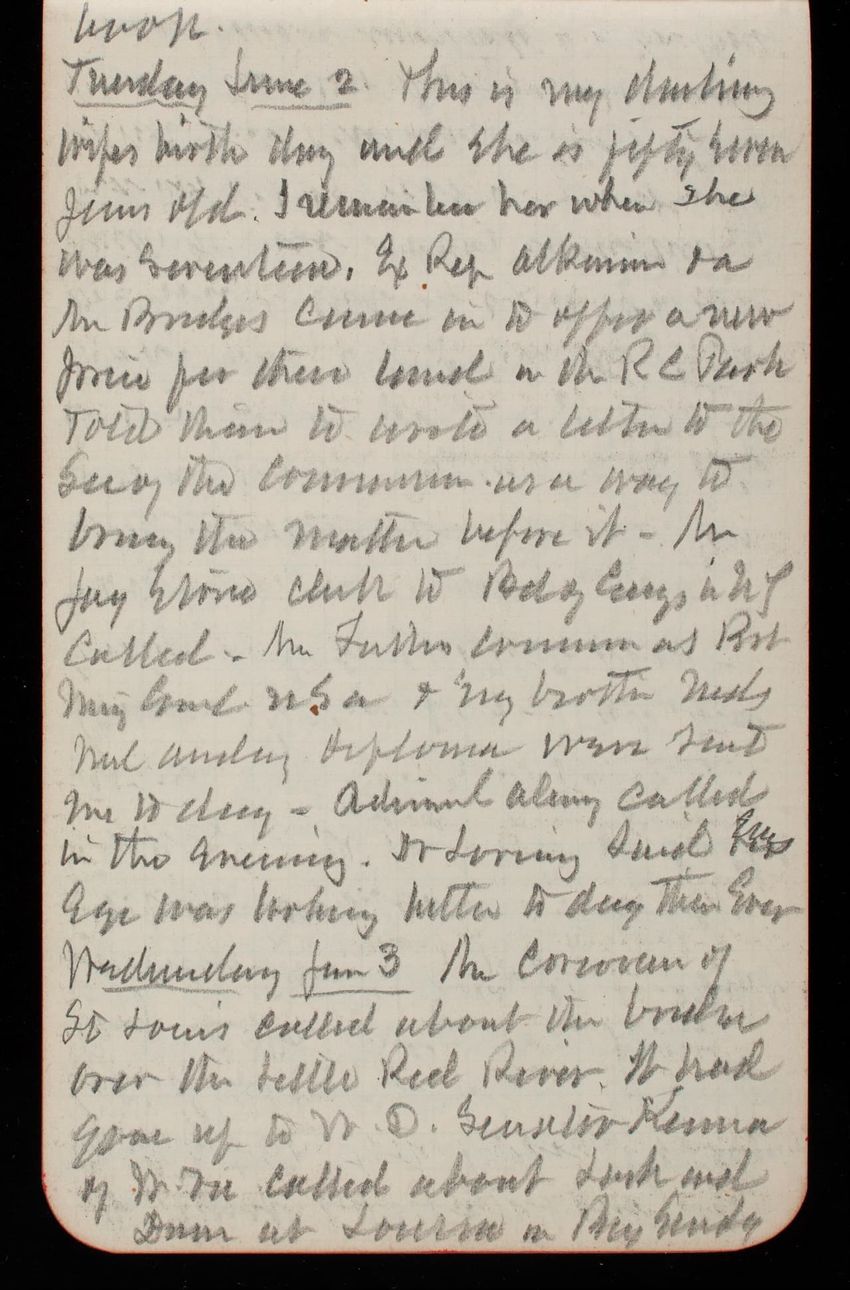 book.
Tuesday June 2. This is my darling
wifes birth day and she is fifty seven
years old. I remember her when she
was seventeen. Ex Rep Atkinson
Mr Bridges came in to offer a new
price for their land in the R C Park
Told them to write a letter to the
Secy of the Commission as a way to
bring the matter before it - Mr
Jay Stone clerk to Bd of Engs in NY
Called - My Fathers commission as Bvt
Maj Genl USA & my brother Neds
diploma were sent
me to day - Admiral Almy called
in the evening. Dr Loring said
Age was looking better to day than Ever
Wednesday Jun 3 Mr Corcoran of
St Louis called about the bridge
over the Little Red River. It had
gone up to W. D. Senator Kenna
of W Va called about Lock and
Dam at Louisa on Big Sandy